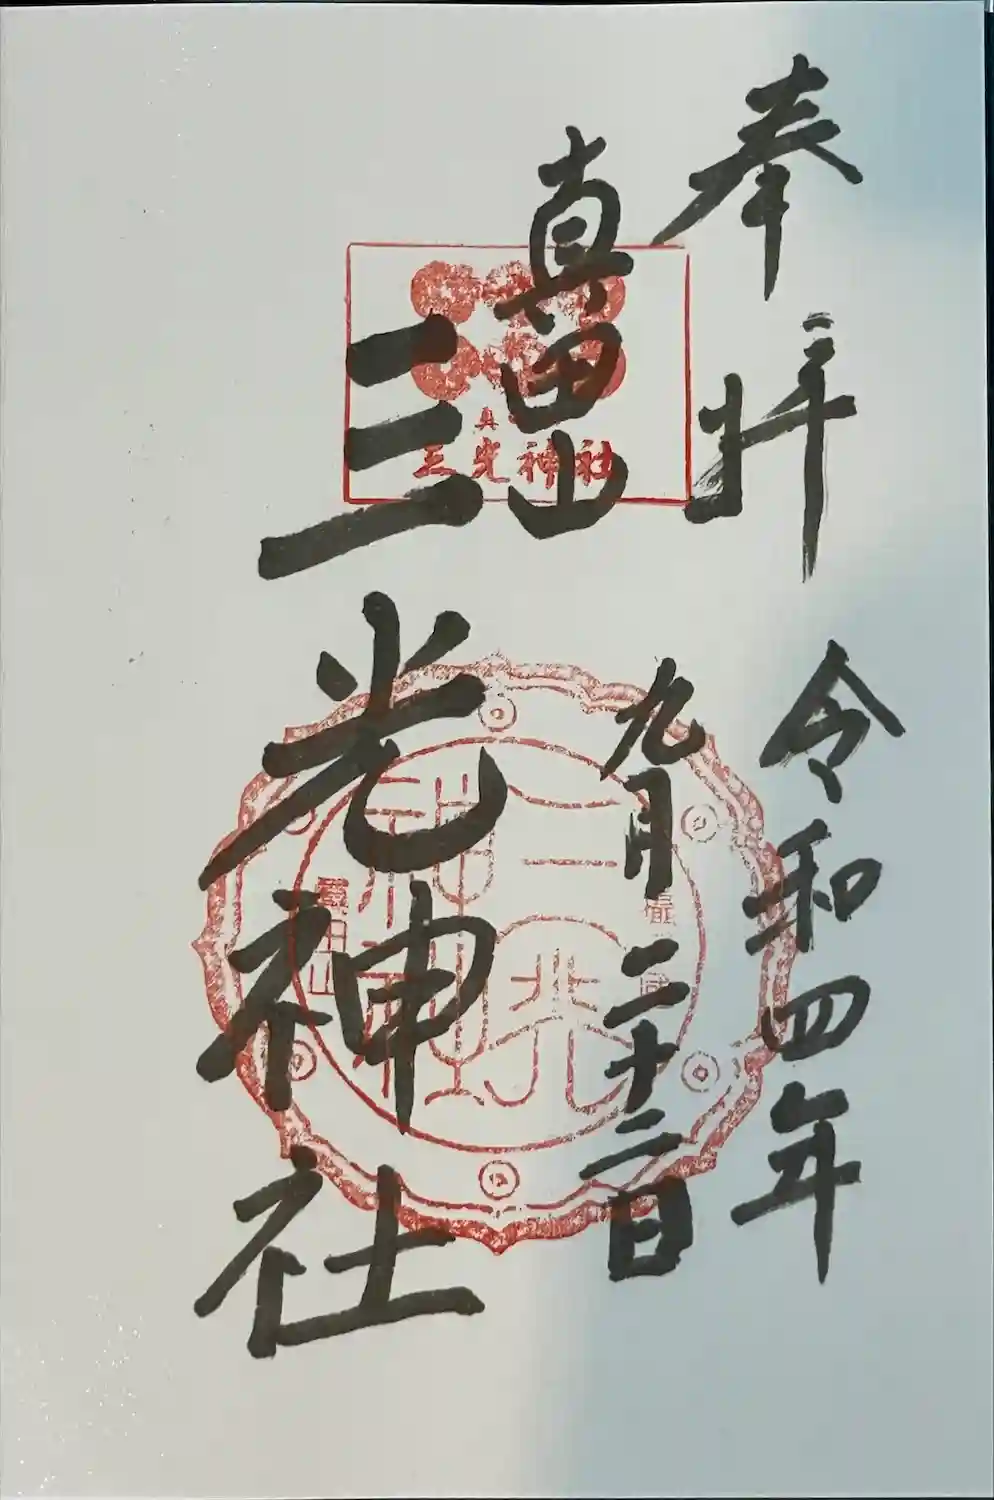 奉拝
令和四年
九月二十二日
真田山
三光神社
三光神社
三光神社
真田山